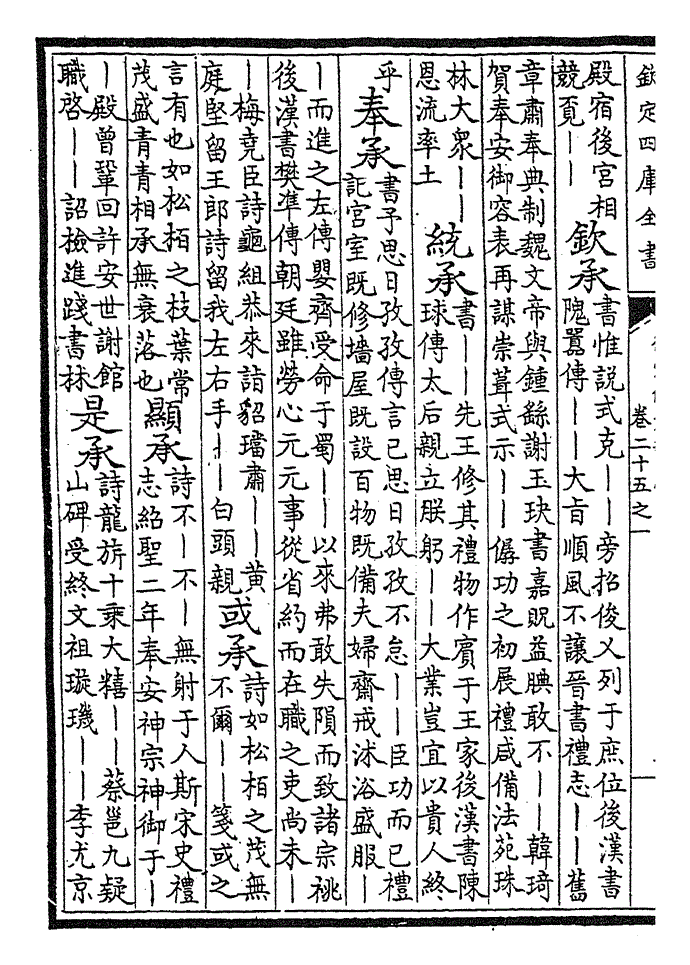 欽定四庫全書
卷二十五之一
殿宿後宮相
競覔｜｜
欽承
書惟說式克｜｜旁招俊乂列于庶位後漢書
隗囂傳｜｜大旨順風不讓晉書禮志｜｜舊
章肅奉典制魏文帝與鍾繇謝玉玦書嘉貺益腆敢不｜｜韓琦
賀奉安御容表再謀崇葺式示｜｜僝功之初展禮咸備法苑珠
林大衆｜｜
恩流率土
統承
書｜｜先王修其禮物作賓于王家後漢書陳
球傳太后親立朕躬｜｜大業豈宜以貴人終
乎
奉承
書予思日孜孜傳言己思日孜孜不怠｜｜臣功而已禮
記宮室既修墻屋既設百物既備夫婦齋戒沐浴盛服｜
｜而進之左傳嬰齊受命于蜀｜｜以來弗敢失隕而致諸宗祧
後漢書樊準傳朝廷雖勞心元元事從省約而在職之吏尚未｜
｜梅堯臣詩龜組恭來詣貂璫肅｜｜黃
庭堅留王郎詩留我左右手｜｜白頭親
或承
詩如松柏之茂無
不爾｜｜箋或之
言有也如松柏之枝葉常
茂盛青青相承無衰落也
顯承
詩不｜不｜無射于人斯宋史禮
志紹聖二年奉安神宗神御于｜
｜殿曾鞏回許安世謝館
職啓｜｜詔檢進踐書林
是承
詩龍旂十乘大糦｜｜蔡邕九疑
山碑受終文祖璇璣｜｜李尤京